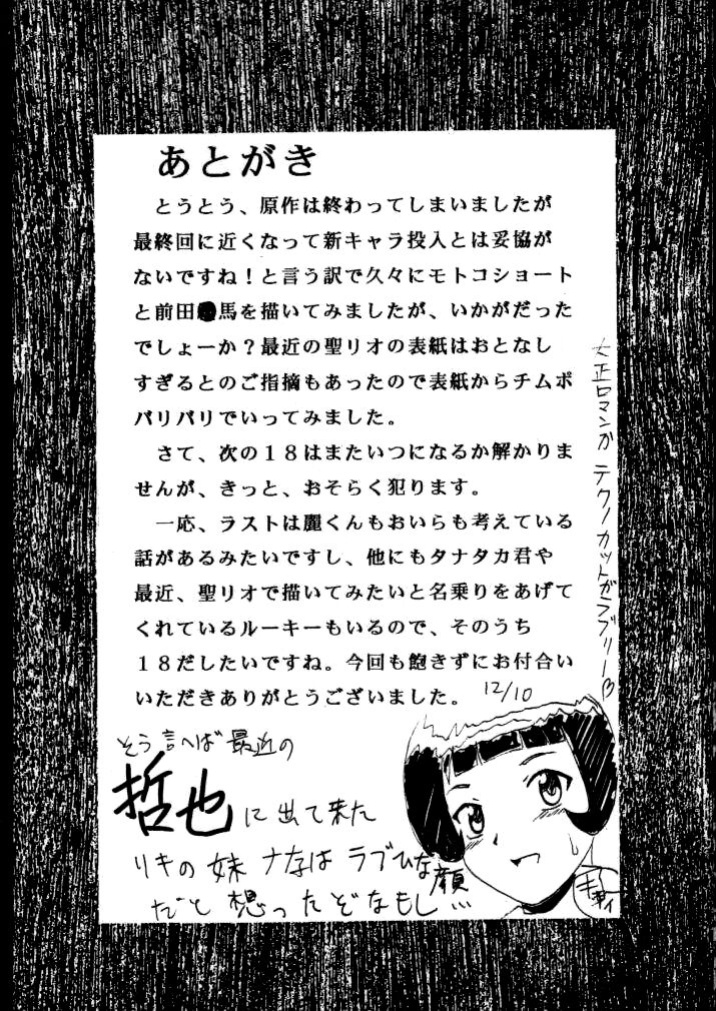 あとがき
とうとう、原作は終わってしまいましたが
最終回に近くなって新キャラ投入とは妥協が
ないですね！と言う訳で久々にモトコショート
と前田●馬を描いてみましたが、いかがだった
でしょーか？最近の聖リオの表紙はおとなし
すぎるとのご指摘もあったので表紙からチムポ
バリバリでいってみました。
さて、次の１８はまたいつになるか解かりま
せんが、きっと、おそらく犯ります。
一応、ラストは麗くんもおいらも考えている
話があるみたいですし、他にもタナタカ君や
最近、聖リオで描いてみたいと名乗りをあげて
くれているルーキーもいるので、そのうち
１８だしたいですね。今回も飽きずにお付合い
いただきありがとうございました。 12/10
大正ロマンが テクノカットがラブリー
そう言へば最近の
哲也に出て来た
リキの妹 ナナは ラブひな顔
だと想ったぞなもし…